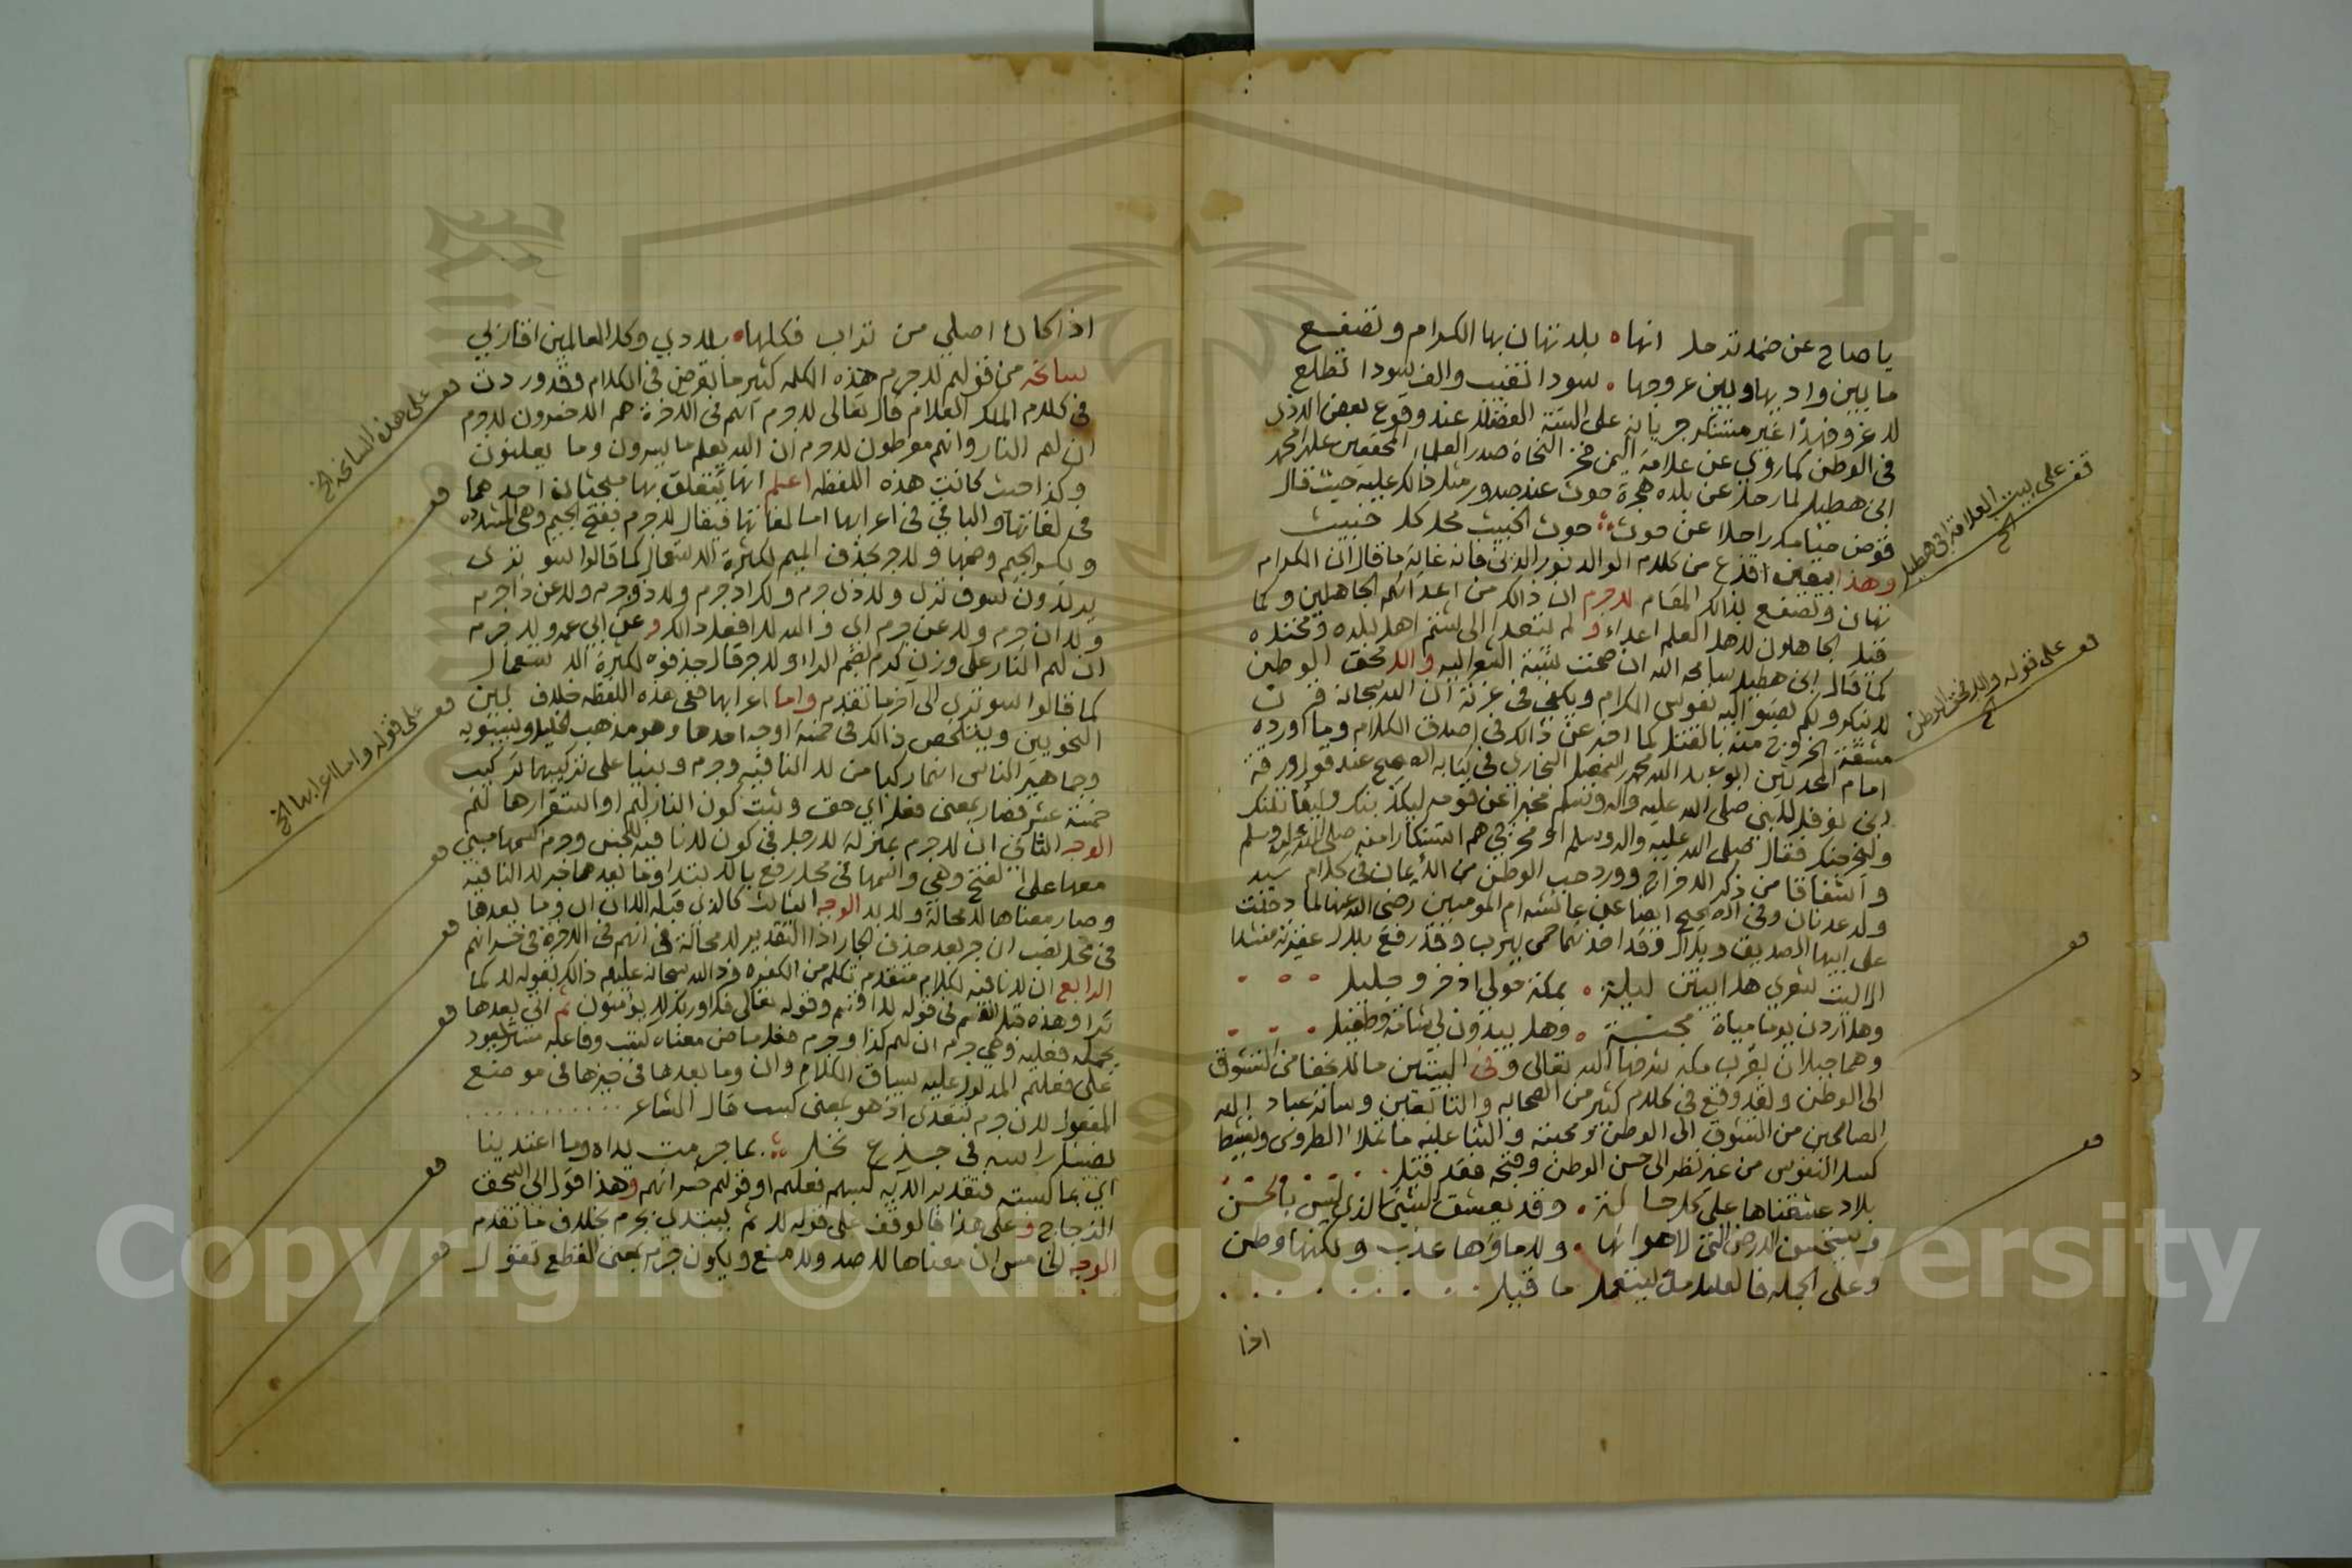 يا صاح عن ضمد ترحل انها ٥ بلد تهان بها الكرام وتصفع
ما بين واديها وبين عروجها ٥ سودا تغيب والف سودا تطلع
لا غرو فهذا غير مستنكر جريانه على السنة الفضلا عند وقوع بعض الاذى
في الوطن كما روي عن علامة اليمن فخر النحاة صدر العلماء المحققين علي محمد
ابن هطيل لما رحل عن بلده هجرة حوث عند صدور مثل ذالك عليه حيث قال
فقوض خيامك راحلا عن حوث ؞ حوث الخبيث محل كل خبيث
وهذا البيت اقذع من كلام الوالد نور الدين فان غاية ما قال ان الكرام
تهان وتصفع بذالك المقام لا جرم ان ذالك من اعدائهم الجاهلين وكما
قيل الجاهلون لاهل العلم اعداء ولم يتعد الى شتم اهل بلده ومحتده
كما قال ابن هطيل سامحه الله ان صحت نسبة الشعر اليه والا فحق الوطن
لا ينكر وكم تصبو اليه نفوس الكرام ويكفي في عزته ان الله سبحانه قرن
مشقة الخروج منه بالقتل كما اخبر عن ذالك في اصدق الكلام وما اورده
امام المحدثين ابو عبد الله محمد بن اسمعيل البخاري في كتابه الصحيح عند قول ورقة
ابن نوفل للنبي صلى الله عليه واله وسلم مخبرا عن قومه ليكذبنك وليقاتلنك
وليخرجنك فقال صلى الله عليه واله وسلم او مخرجي هم استنكارا منه صلى الله عليه وسلم
واشفاقا من ذكر الاخراج وورد حب الوطن من الايمان في كلام سيد
ولد عدنان وفي الصحيح ايضا عن عائشه ام المومنين رضي الله عنها لما دخلت
على ابيها الصديق وبلال وقد اخذتهما حمى يثرب وقد رفع بلال عقيرته منشدا
الا ليت شعري هل ابيتن ليلة ٥ بمكة حولي اذخر وجليل
وهل اردن يوما مياة مجنة ٥ وهل يبدون لي شامة وطفيل
وهما جبلان بقرب مكه شرفها الله تعالى وفي البيتين ما لا يخفا من التشوق
الى الوطن ولقد وقع في كلام كثير من الصحابه والتابعين وسائر عباد الله
الصالحين من التشوق الى الوطن ومحبته والثنا عليه ما يملاء الطروس وينشط
كسل النفوس من غير نظر الى حسن الوطن وقبحه فقد قيل
بلاد عشقناها على كل حالة ٥ وقد يعشق الشيء الذي ليس بالحسن
وتستحسن الارض التي لا هوا بها ٥ ولا ماؤها عذب ولكنها وطن
وعلى الجمله فالعليل من يستعمل ما قيل
اذا
قف على بيت العلامة ابن هطيل الخ
قف على قوله والا فحق الوطن الخ
قف
قف
اذا كان اصلي من تراب فكلها ٥ بلادي وكل العالمين اقاربي
سانحه من قولهم لا جرم هذه الكلمه كثير ما تعرض في الكلام وقد وردت
في كلام الملك العلام قال تعالى لا جرم انهم في الاخرة هم الاخسرون لا جرم
ان لهم النار وانهم مفرطون لا جرم ان الله يعلم ما يسرون وما يعلنون
وكذا حيث كانت هذه اللفظه اعلم انها يتعلق بها مبحثان احدهما
في لغاتها والثاني في اعرابها اما لغاتها فيقال لا جرم بفتح الجيم وهي المشهوره
وبكسر الجيم وضمها ولا جر بحذف الميم لكثرة الاستعمال كما قالوا سو ترى
يريدون سوف ترى ولا ذا جرم ولا اذ جرم ولا ذو جرم ولا عن ذا جرم
ولا ان جرم ولا عن جرم اي والله لا افعل ذالك وعن ابي عمرو لا جرم
ان لهم النار على وزن كرم بضم الراء ولا جر قال حذفوه لكثرة الاستعمال
كما قالوا سو ترى الى آخر ما تقدم واما اعرابها ففي هذه اللفظه خلاف بين
النحويين ويتلخص ذالك في خمسة اوجه احدها وهو مذهب الخليل وسيبويه
وجماهير الناس انهما ركبا من لا النافيه وجرم وبنيا على تركيبهما تركيب
خمسة عشر فصار بمعنى فعل اي حق وثبت كون النار لهم او استقرارها لهم
الوجه الثاني ان لا جرم بمنزلة لا رجل في كون لا نافيه للجنس وجرم اسمها مبني
معها على الفتح وهي واسمها في محل رفع بالابتدا وما بعدها خبر لا النافيه
وصار معناها لا محالة ولا بد الوجه الثالث كالذي قبله الا ان ان وما بعدها
في محل نصب او جر بعد حذف الجار اذ التقدير لا محالة في انهم في الاخرة في خسرانهم
الرابع ان لا نافيه لكلام متقدم تكلم من الكفره فرد الله سبحانه عليهم ذالك بقوله لا كما
ترا وهذه قبل القسم في قوله لا اقسم وقوله تعالى فلا وربك لا يؤمنون ثم اتى بعدها
بجمله فعليه وهي جرم ان لهم كذا وجرم فعل ماض معناه كسب وفاعله مستتر يعود
على فعلهم المدلول عليه بسياق الكلام وان وما بعدها في حيزها في موضع
المفعول لان جرم يتعدى اذ هو بمعنى كسب قال الشاعر
نصبنا راسه في جذع نخل ؞ بما جرمت يداه وما اعتدينا
اي بما كسبت فتقدير الآيه كسبهم فعلهم او قولهم خسرانهم وهذا قول ابي اسحق
الزجاج وعلى هذا فالوقف على قوله لا ثم يبتدي بجرم بخلاف ما تقدم
الوجه الخامس ان معناها لا صد ولا منع ويكون جرم بمعنى القطع تقول
قف على هذه السانحه الخ
قف
قف على قوله واما اعرابها الخ
قف
قف
قف
قف
قف
Copyright © King Saud University